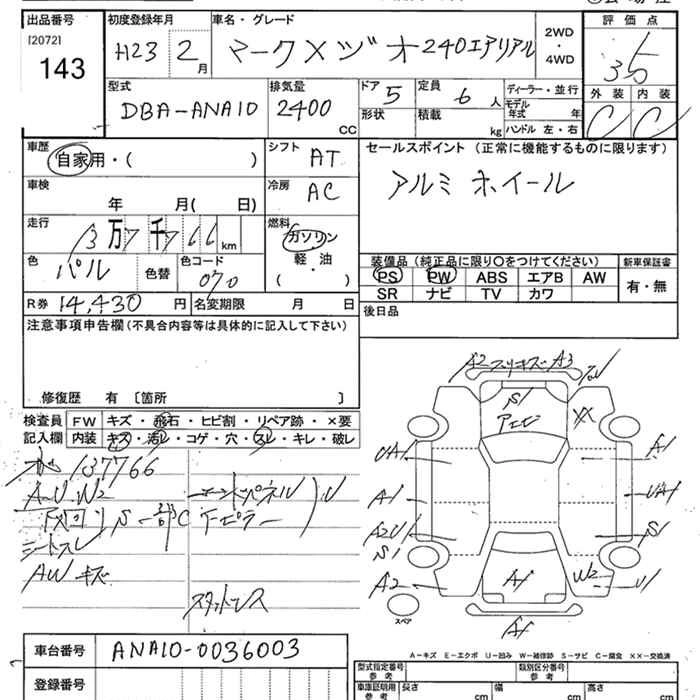 出品番号
[2072]
143
初度登録年月
H23 2月
車名・グレード
マークXジオ 240エアリアル
2WD
・
4WD
評価点
3.5
外装 内装
C C
型式
DBA-ANA10
排気量
2400
CC
ドア 5
形状
定員 6 人
積載 kg
ディーラー・並行
モデル年式 年
ハンドル 左・右
車歴
自家用・( )
シフト AT
セールスポイント (正常に機能するものに限ります)
アルミホイール
車検
年 月( 日)
冷房 AC
走行
13万7千766km
燃料
ガソリン
軽油
・
( )
色
パール
色替
色コード
070
装備品 (純正品に限り○をつけてください)
PS PW ABS エアB AW
SR ナビ TV カワ
新車保証書
有・無
R券 14,430 円
名変期限 月 日
後日品
注意事項申告欄(不具合内容等は具体的に記入して下さい)
修復歴 有 〔箇所 〕
検査員
記入欄
FW キズ・飛石・ヒビ割・リペア跡・×要
内装 キズ・汚レ・コゲ・穴・スレ・キレ・破レ
137766
A-U.W2
下廻り S-部C
シートスレ
AWキズ
エンドパネル
下ピラー
U
スタットレス
A2 スリキズ A3
S1
アエビ
XX
UA1
A1
A1
UA1
A2U1
S1
S1
A2
A1
W2
U1
A1
スペア
A-キズ E-エクボ U-凹み W-補修跡 S-サビ C-腐食 XX-交換済
車台番号 ANA10-0036003
登録番号
型式指定番号
参考
類別区分番号
参考
車庫証明用
参考
長さ cm
幅 cm
高さ cm